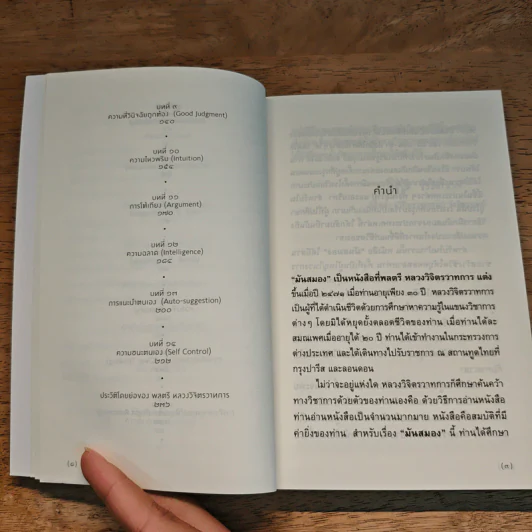 บทที่ ๙
ความที่วินิจฉัยถูกต้อง (Good Judgment)
๑๔๐
บทที่ ๑๐
ความไหวพริบ (Intuition)
๑๕๔
บทที่ ๑๑
การโต้เถียง (Argument)
๑๗๐
บทที่ ๑๒
ความฉลาด (Intelligence)
๑๘๔
บทที่ ๑๓
การแนะนำตนเอง (Auto-suggestion)
๒๐๐
บทที่ ๑๔
ความชนะตนเอง (Self Control)
๒๑๒
ประวัติโดยย่อของ พลตรี หลวงวิจิตรวาทการ
๒๓๖
คำนำ
"มันสมอง" เป็นหนังสือที่พลตรี หลวงวิจิตรวาทการ แต่ง
ขึ้นเมื่อปี ๒๔๗๑ เมื่อท่านอายุเพียง ๓๐ ปี หลวงวิจิตรวาทการ
เป็นผู้ที่ได้ดำเนินชีวิตด้วยการศึกษาหาความรู้ในแขนงวิชาการ
ต่างๆ โดยมิได้หยุดยั้งตลอดชีวิตของท่าน เมื่อท่านได้ละ
สมณเพศเมื่ออายุได้ ๒๐ ปี ท่านได้เข้าทำงานในกระทรวงการ
ต่างประเทศ และได้เดินทางไปรับราชการ ณ สถานทูตไทยที่
กรุงปารีส และลอนดอน
ไม่ว่าจะอยู่แห่งใด หลวงวิจิตรวาทการก็ศึกษาค้นคว้า
ทางวิชาการด้วยตัวของท่านเองคือ ด้วยวิธีการอ่านหนังสือ
ท่านอ่านหนังสือเป็นจำนวนมากมาย หนังสือคือสมบัติที่มี
ค่ายิ่งของท่าน สำหรับเรื่อง "มันสมอง" นี้ ท่านได้ศึกษา